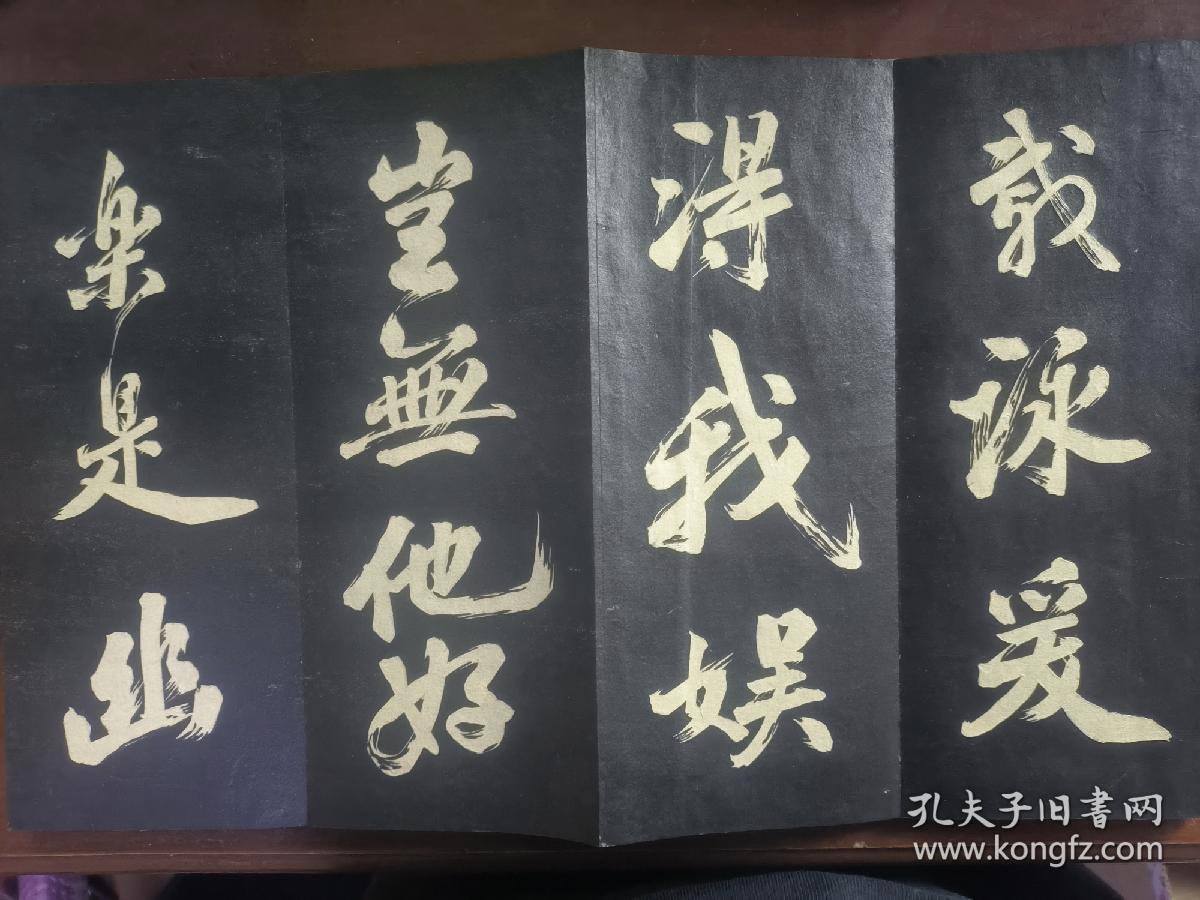 載詠爰
得我娱
豈無他好
楽是幽
孔夫子旧書网
www.kongfz.com